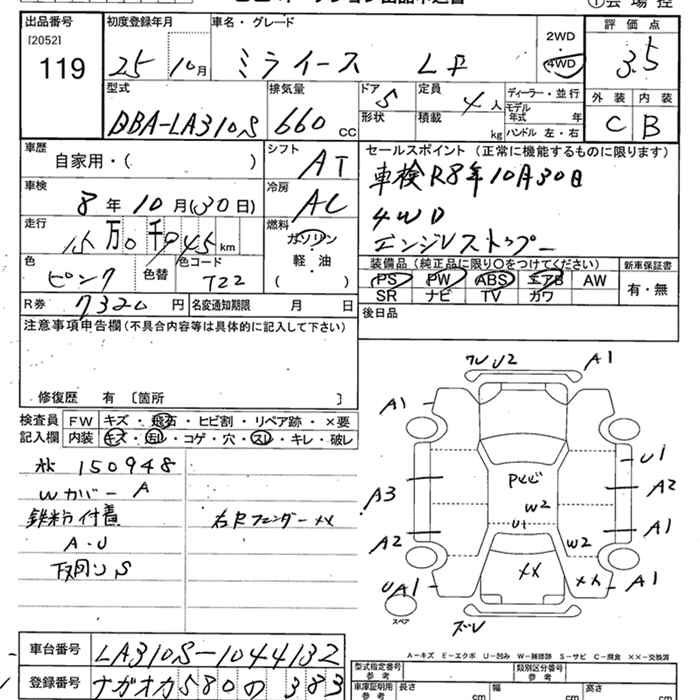 出品番号 初度登録年月 車名・グレード 2WD 評価点
[2052] 119 25 10月 ミライース Lf 4WD 3.5
型式 排気量 ドア 5 定員 4人 ディーラー・並行 外装 内装
DBA-LA310S 660cc 形状 積載 kg モデル年式 年 ハンドル 左・右 C B
車歴 自家用・( ) シフト AT セールスポイント (正常に機能するものに限ります)
車検 8年10月(30日) 冷房 AC 車検R8年10月30日
4WD
走行 15万0千945km 燃料 ガソリン エンジンストップ
軽・油 ( )
色 ピンク 色替 色コード T22 装備品(純正品に限り○をつけてください) 新車保証書
PS PW ABS エアB AW 有・無
R券 7320円 名変通知期限 月 日 SR ナビ TV カワ
注意事項申告欄(不具合内容等は具体的に記入して下さい) 後日品
修復歴 有 [箇所 ]
検査員 FW キズ・飛石・ヒビ割・リペア跡・×要
記入欄 内装 キズ・汚レ・コゲ・穴・スレ・キレ・破レ
150948
Wカバー A
鉄粉付着 右Rフェンダー XX
A・U
下廻りS
ワレU2 A1
A1
U1
A3 A2
W2
U1 A1
A2 W2
XX XX A1
UA1
スペア ズレ
A-キズ E-エクボ U-凹み W-補修跡 S-サビ C-腐食 ××-交換済
車台番号 LA310S-1044132 型式指定番号 参考 類別区分番号 参考
登録番号 ナガオカ580の383 車庫証明用 参考 長さ cm 幅 cm 高さ cm